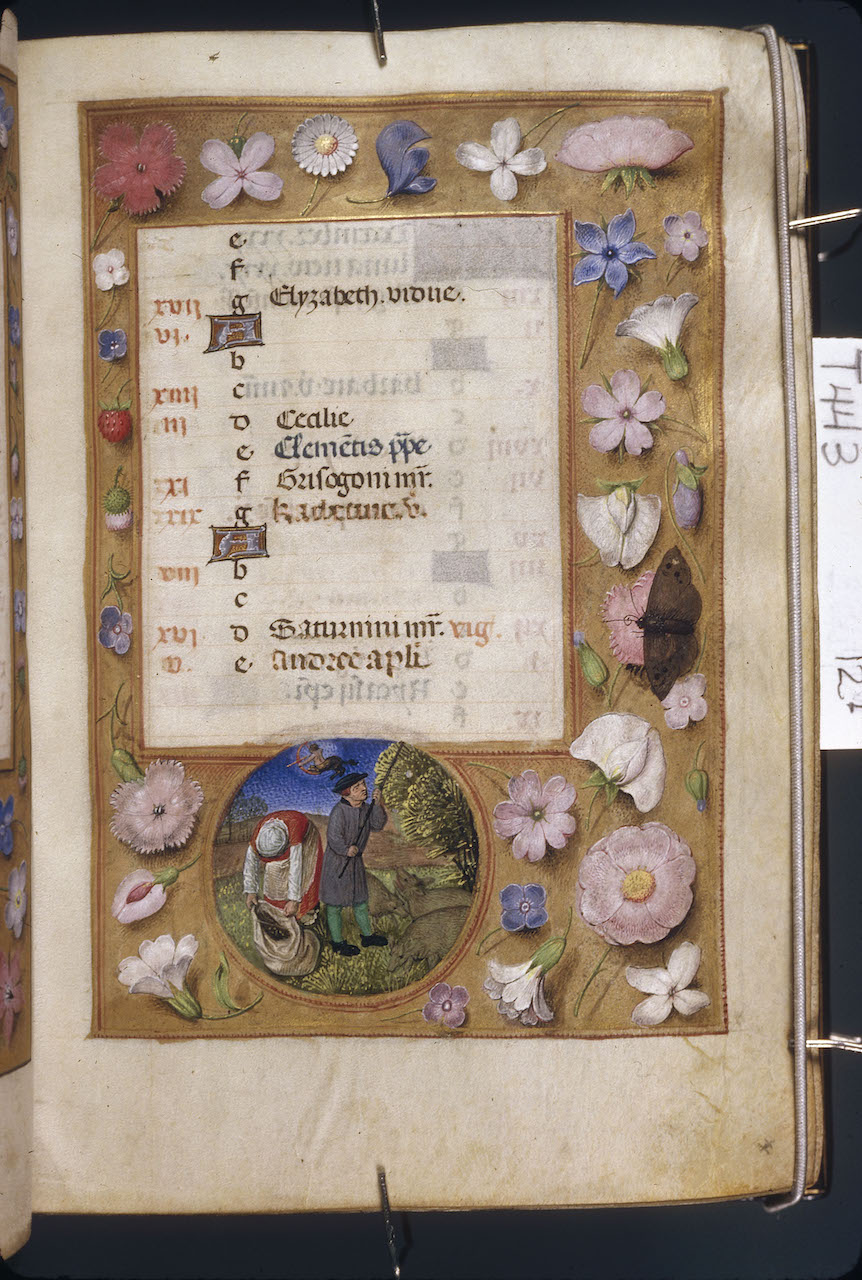 e
f
xvii g Elyzabeth. vidue.
vi. A
b
xiiii c
iii d Cecilie
e Clemẽtis pp̃e
xi f Grisogoni mr̃.
xix g Katherine. v.
A
viii b
c
xvi d Saturnini mr̃. vig.
v. e Andree apl̃i
T443
127